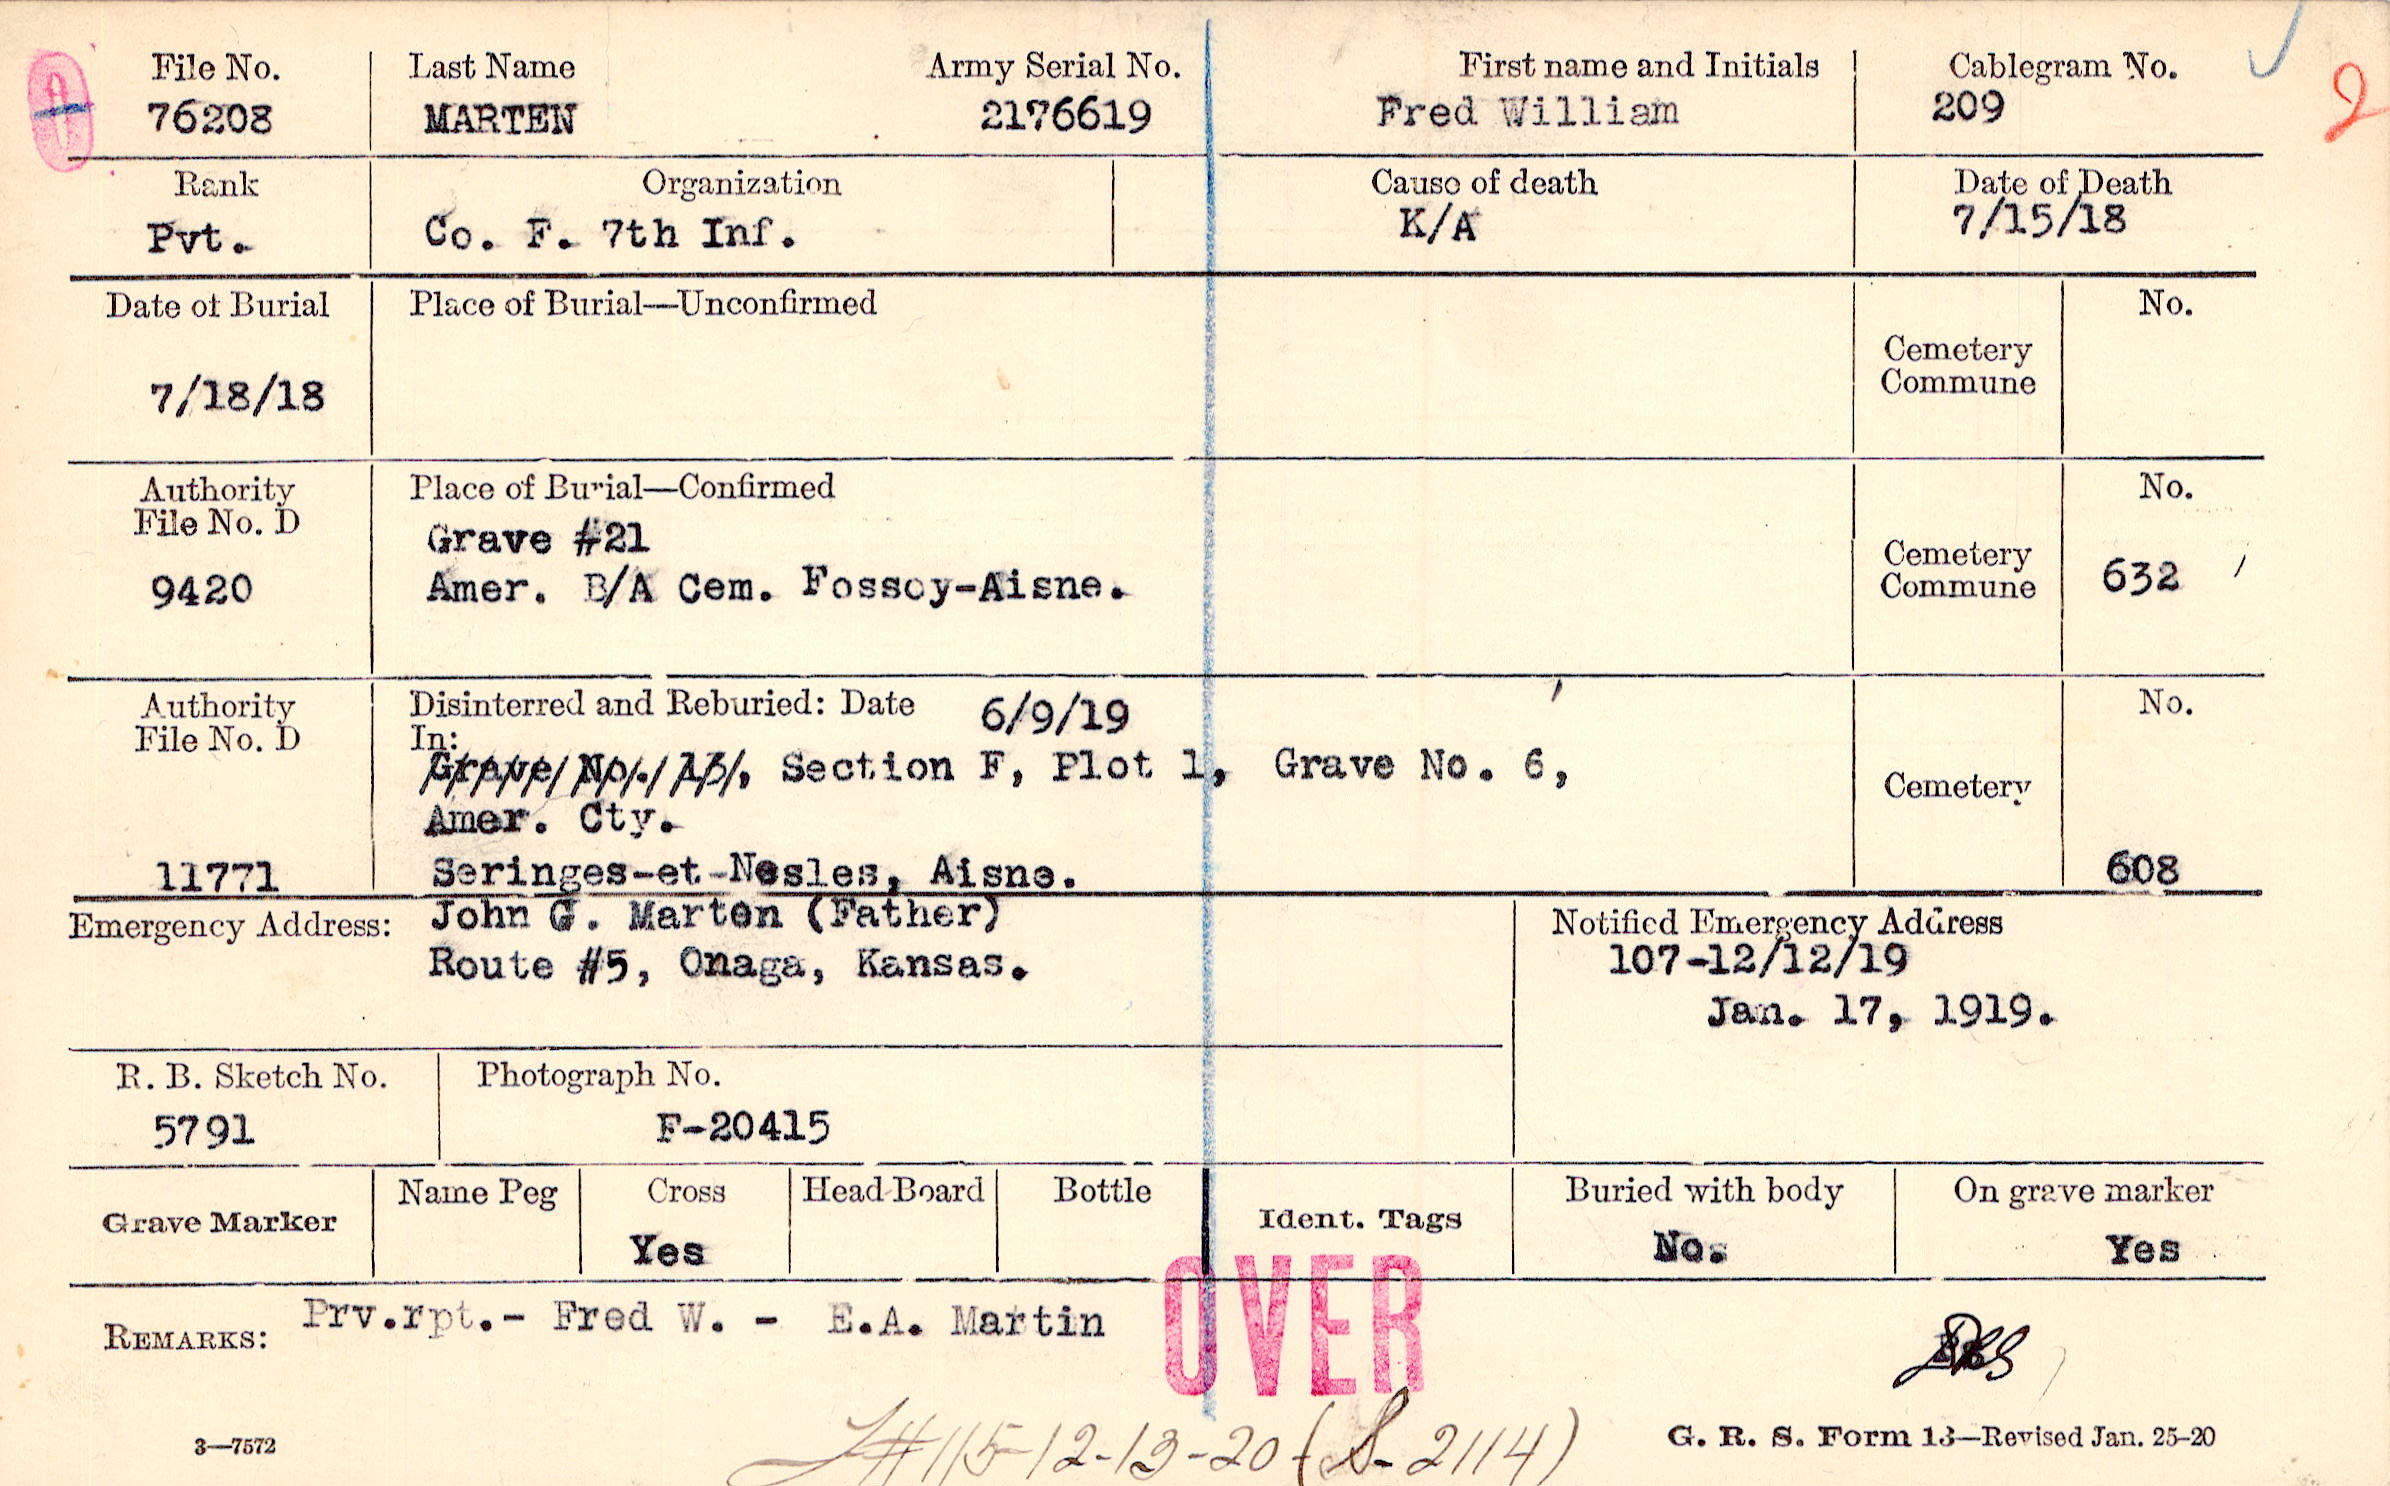 File No. Last Name Army Serial No. First name and Initials Cablegram No.
76208 MARTEN 2176619 Fred William 209
2
Rank Organization Cause of death Date of Death
Pvt. Co. F. 7th Inf. K/A 7/15/18
Date of Burial Place of Burial—Unconfirmed No.
7/18/18
Cemetery
Commune
Authority
File No. D
9420
Place of Burial—Confirmed
Grave #21
Amer. B/A Cem. Fossoy-Aisne.
Cemetery
Commune
No.
632
Authority
File No. D
11771
Disinterred and Reburied: Date 6/9/19
In:
Grave No. 13, Section F, Plot 1, Grave No. 6,
Amer. Cty.
Seringes-et-Nesles, Aisne.
Cemetery
No.
608
Emergency Address: John G. Marten (Father)
Route #5, Onaga, Kansas.
Notified Emergency Address
107-12/12/19
Jan. 17, 1919.
R. B. Sketch No. Photograph No.
5791 F-20415
Grave Marker Name Peg Cross Head Board Bottle Ident. Tags Buried with body On grave marker
Yes No. Yes
OVER
REMARKS: Prv.rpt.- Fred W. - E.A. Martin
#115-12-13-20 (S-2114)
3—7572 G. R. S. Form 13—Revised Jan. 25-20